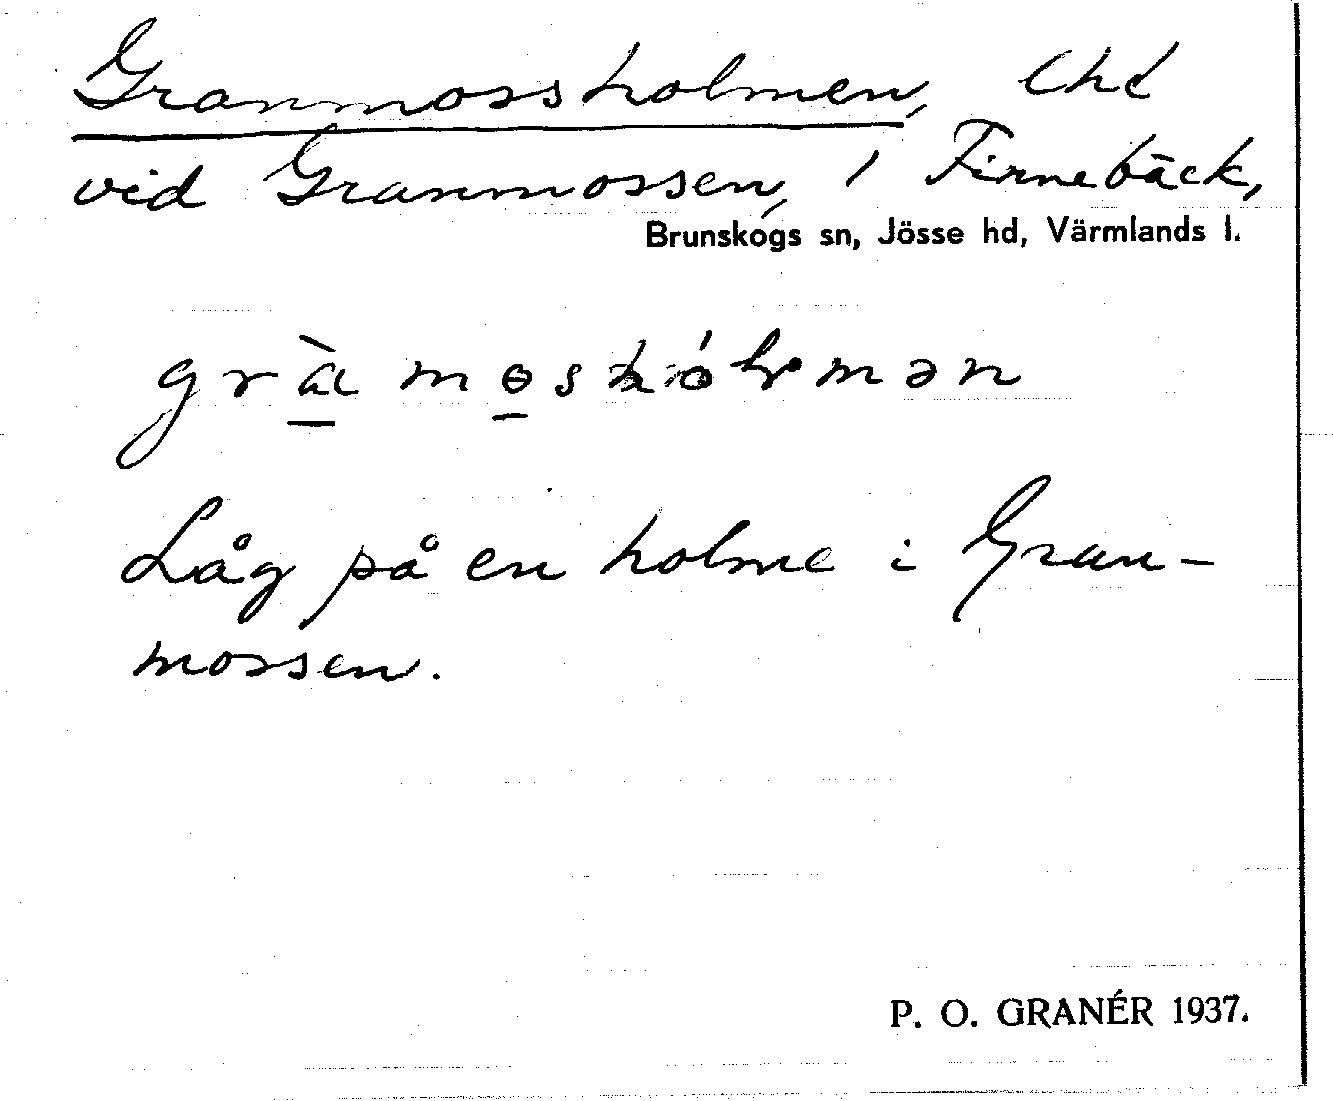 Granmossholmen, lhd
vid Granmossen, i Finnebäck,
Brunskogs sn, Jösse hd, Värmlands l.
Låg på en holme i Gran-
mossen.
P. O. GRANÉR 1937.